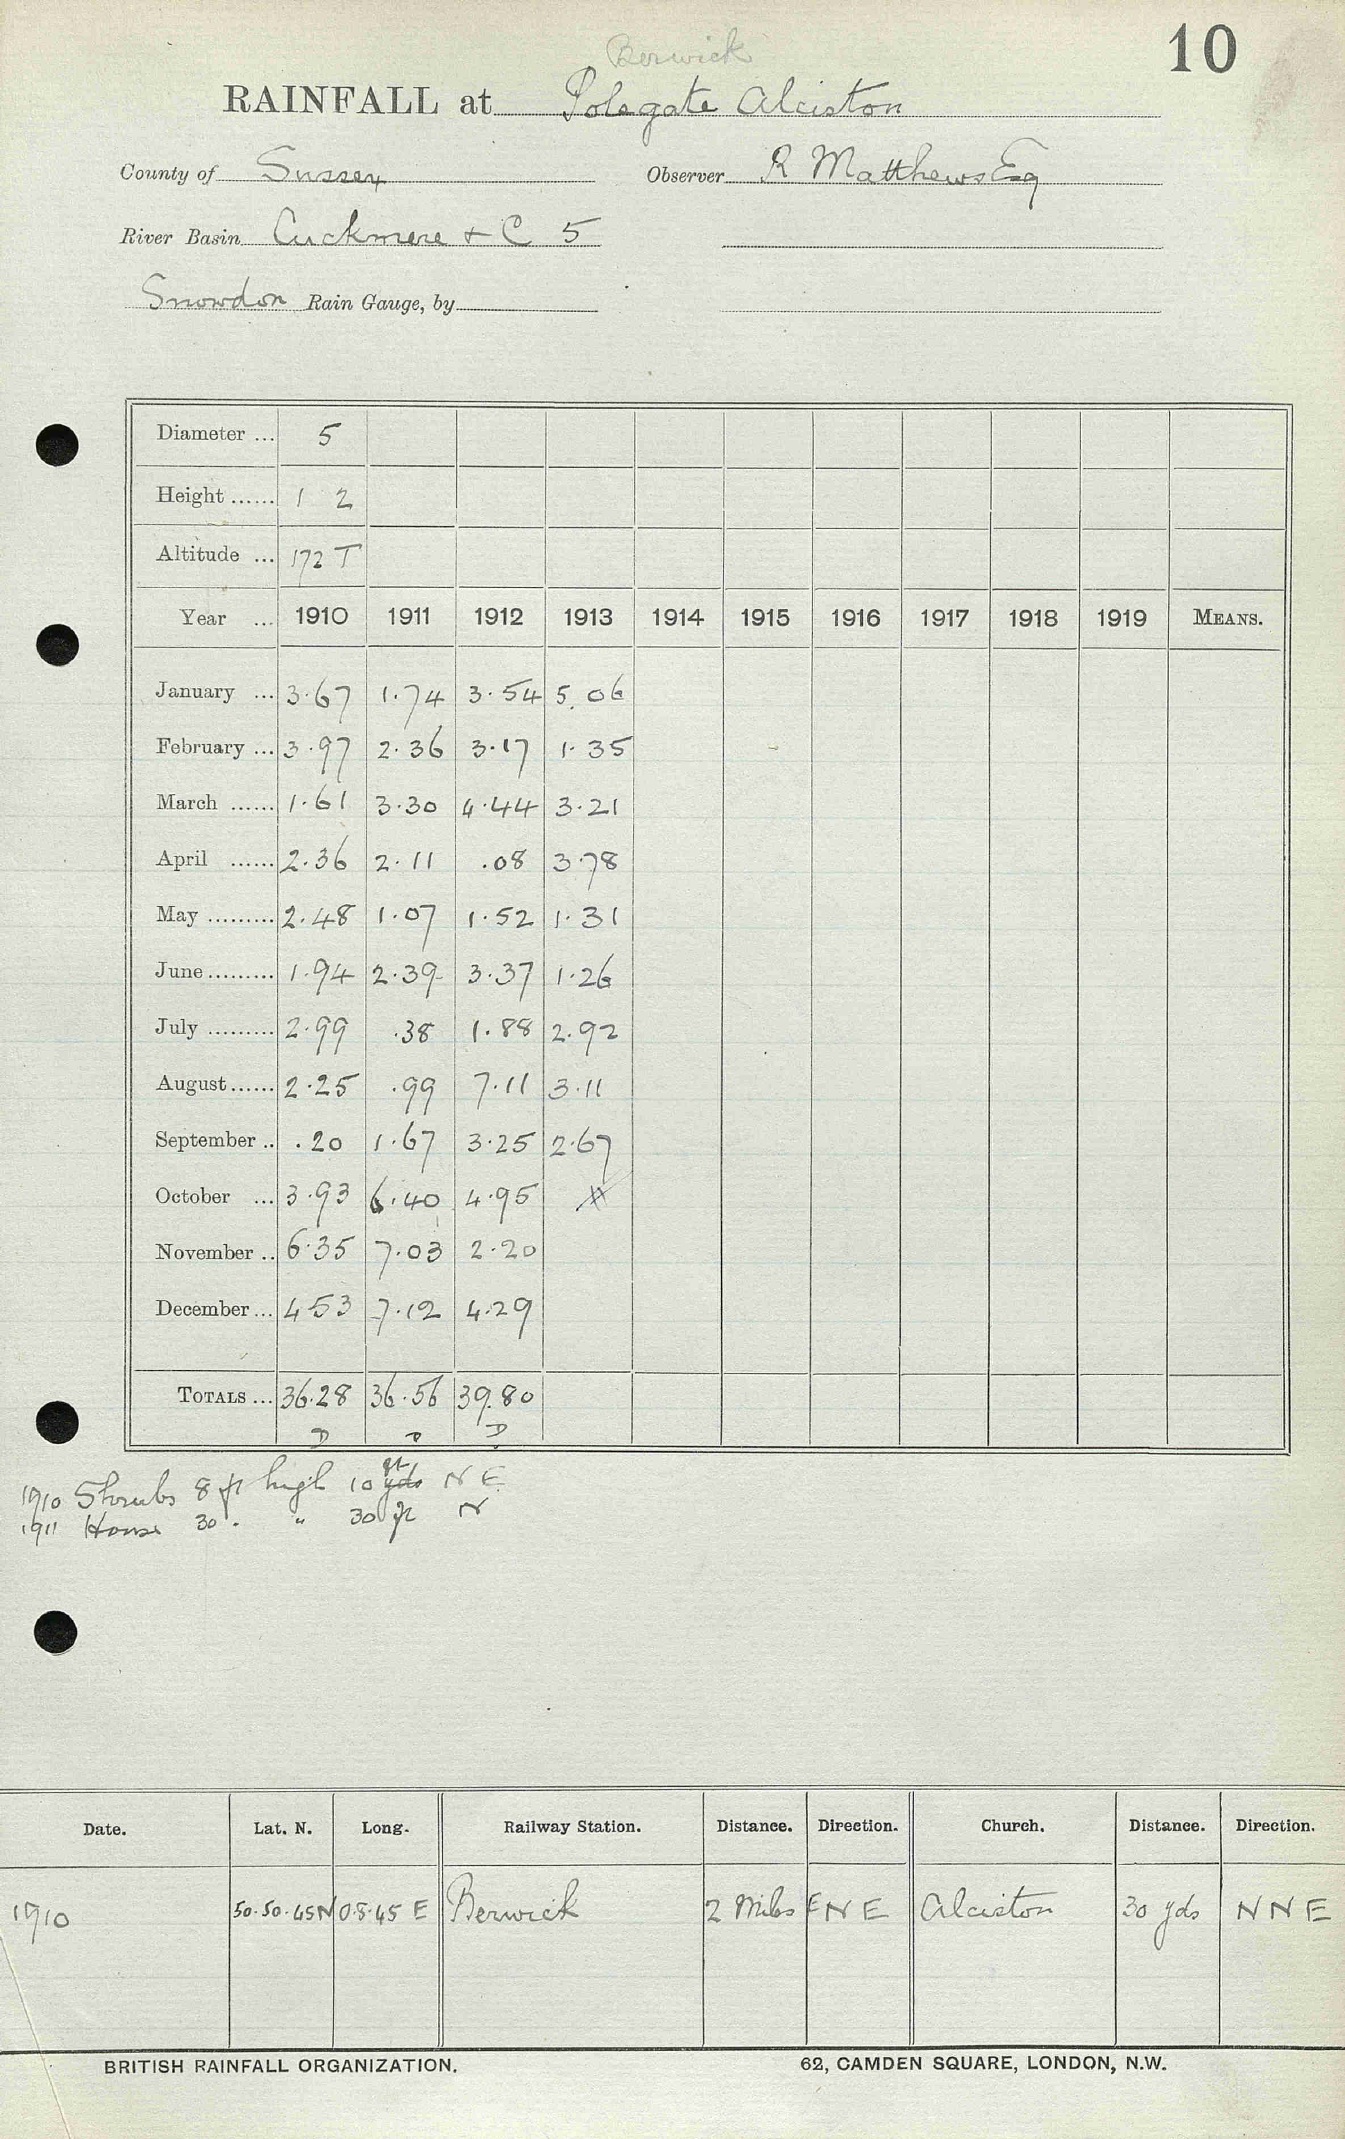 10
Berwick
RAINFALL at Polegate Alciston
County of Sussex Observer R Matthews Esq
River Basin Cuckmere + C 5
Snowdon Rain Gauge, by
Diameter ... 5
Height ...... 1 2
Altitude ... 172 T
Year ... 1910 1911 1912 1913 1914 1915 1916 1917 1918 1919 MEANS.
January ... 3.67 1.74 3.54 5.06
February ... 3.97 2.36 3.17 1.35
March ...... 1.61 3.30 4.44 3.21
April ...... 2.36 2.11 .08 3.78
May ......... 2.48 1.07 1.52 1.31
June ......... 1.94 2.39 3.37 1.26
July ......... 2.99 .38 1.88 2.92
August ...... 2.25 .99 7.11 3.11
September .. .20 1.67 3.25 2.67
October ... 3.93 6.40 4.95
November .. 6.35 7.03 2.20
December ... 4 53 7.12 4.29
TOTALS ... 36.28 36.56 39.80
D D D
1910 Shrubs 8 ft high 10 yds ft N E
1911 House 30 . " 30 ft N
Date. Lat. N. Long. Railway Station. Distance. Direction. Church. Distance. Direction.
1910 50.50.45N 0.8.45 E Berwick 2 Miles ENE Alciston 30 yds N N E
BRITISH RAINFALL ORGANIZATION. 62, CAMDEN SQUARE, LONDON, N.W.